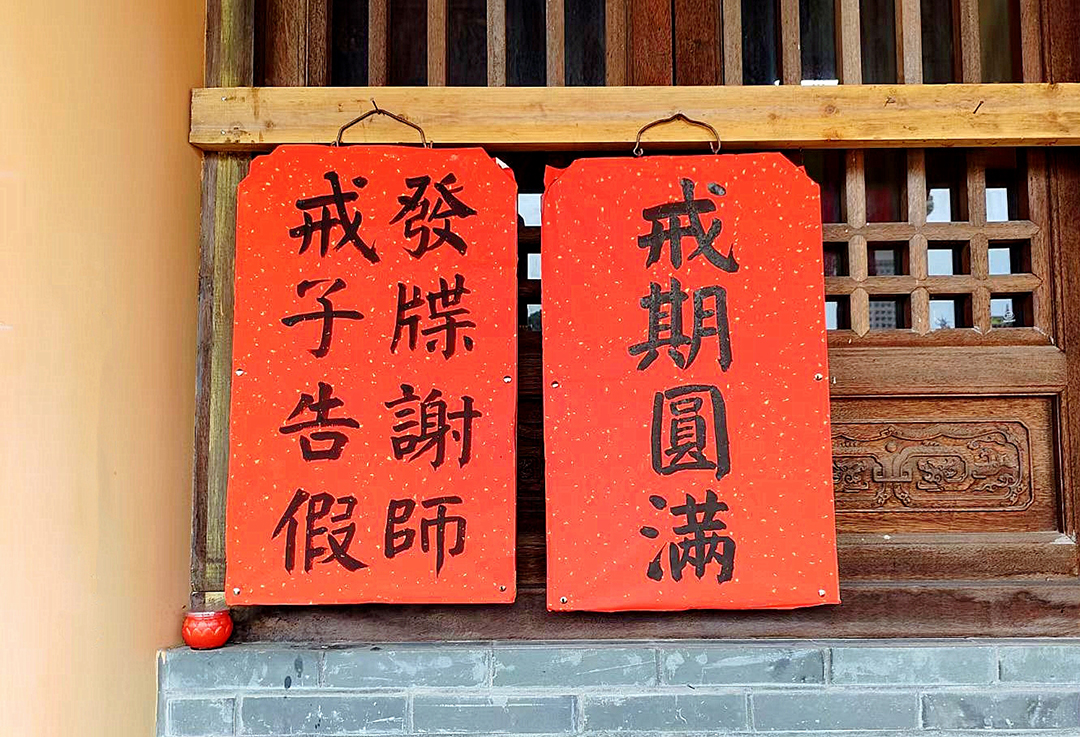 戒期圓滿
發牒謝師
戒子告假